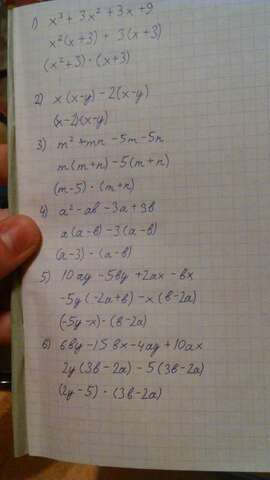 1) x³ + 3x² + 3x + 9
x²(x+3) + 3(x+3)
(x²+3)·(x+3)
2) x(x-y) - 2(x-y)
(x-2)(x-y)
3) m² + mn - 5m - 5n
m(m+n) - 5(m+n)
(m-5)·(m+n)
4) a² - ab - 3a + 3b
a(a-b) - 3(a-b)
(a-3)·(a-b)
5) 10ay - 5by + 2ax - bx
-5y(-2a+b) - x(b-2a)
(-5y-x)·(b-2a)
6) 6by - 15bx - 4ay + 10ax
2y(3b-2a) - 5(3b-2a)
(2y-5)·(3b-2a)